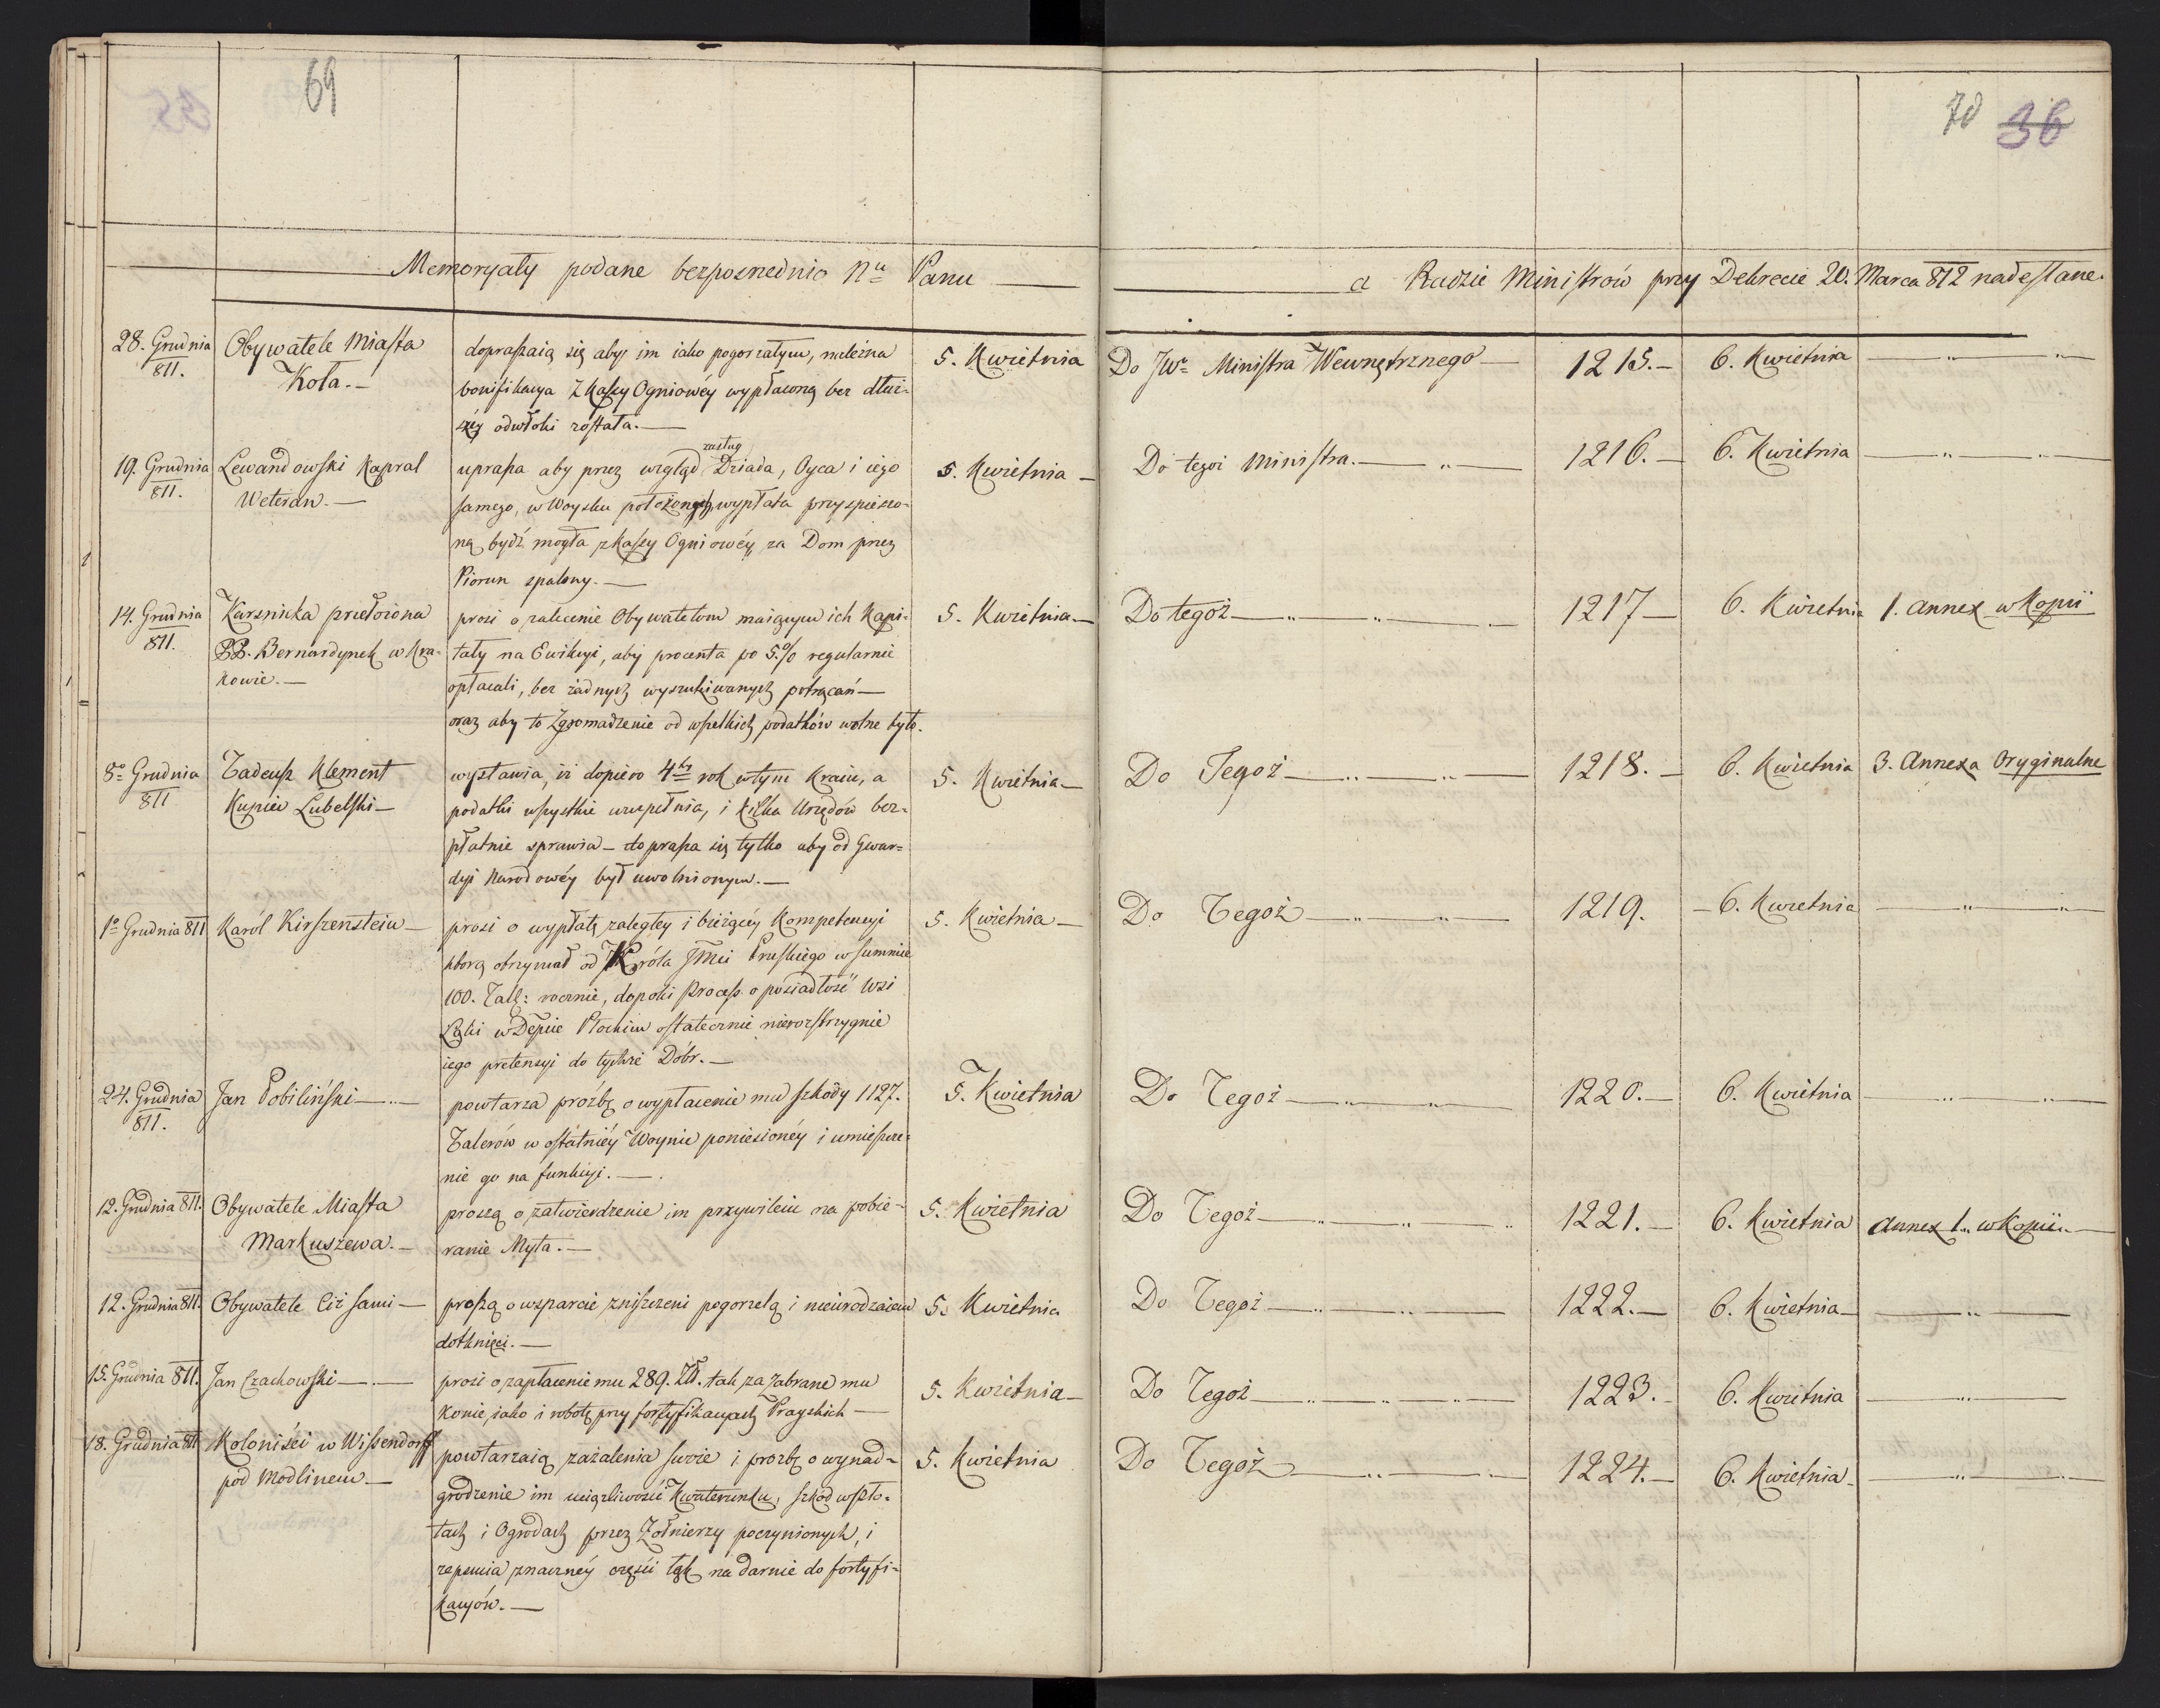 69
70 36
Memoryały podane bezpośrednio Nu Panu — a Radzie Ministrów przy Dekrecie 20. Marca 812 nadesłane.
28. Grudnia 811.
Obywatele Miasta
Koła.—
dopraszaią się aby im iako pogorzałym, należna
bonifikacya z Kassy Ogniowéy wypłaconą bez dłuż-
széy odwłoki została.—
5. Kwietnia
Do JWo Ministra Wewnętrznego —
1215.—
6. Kwietnia
19. Grudnia 811.
Lewandowski Kapral
Weteran.—
uprasza aby przez wzgląd zasług Dziada, Oyca i iego
samego, w Woysku położonych, wypłata przyspieszo-
ną bydź mogła z Kassy Ogniowéy za Dom przez
Piorun spalony.—
5. Kwietnia —
Do tegoż Ministra.—
1216.—
6. Kwietnia
14. Grudnia 811.
Karsnicka przełożona
PP. Bernardynek w Kra-
kowie.—
prosi o zalecenie Obywatelom maiącym ich Kapi-
tały na Ewikcyi, aby procenta po 5.% regularnie
opłacali, bez żadnych wyszukiwanych potrącań—
oraz aby to Zgromadzenie od wszelkich podatków wolne było.
5. Kwietnia.—
Do tegoż
1217—
6. Kwietnia
1. annex w Kopii
8o Grudnia 811
Tadeusz Klement
Kupiec Lubelski—
wystawia, iż dopiero 4ty rok w tym Kraiu, a
podatki wszystkie uzupełnia, i kilka Urzędów bez-
płatnie sprawia — doprasza się tylko aby od Gwar-
dyi Narodowéy był uwolnionym.—
5. Kwietnia—
Do Tegoż
1218.—
6. Kwietnia
3. Annexa Oryginalne
1o Grudnia 811
Karól Kirszenstein—
prosi o wypłatę zaległey i bieżącéy Kompetencyi
którą otrzymał od Króla JMci Pruskiego w summie
100. Tall: rocznie, dopóki Process o posiadłość Wsi
Łąki w Depcie Płockim ostatecznie nierozstrzygnie
iego pretensyi do tychże Dóbr.—
5. Kwietnia—
Do Tegoż
1219.
— 6. Kwietnia
24. Grudnia 811.
Jan Pobiliński
powtarza proźbę o wypłacenie mu szkody 1127.
Talerów w ostátniéy Woynie poniesionéy i umieszcze-
nie go na funkcyi.—
5. Kwietnia
Do Tegoż
1220.—
6. Kwietnia
12. Grudnia 811.
Obywatele Miasta
Markuszewa.—
proszą o zatwierdzenie im przywileiu na pobie-
ranie Myta.—
5. Kwietnia
Do Tegoż
1221.—
6. Kwietnia
annex 1. w Kopii.
12. Grudnia 811.
Obywatele Ciż sami —
proszą o wsparcie, zniszczeni pogorzelą i nieurodzaiem
dotknięci.—
5. Kwietnia
Do Tegoż
1222.—
6. Kwietnia—
15. Grudnia 811.
Jan Czachowski
prosi o zapłacenie mu 289. Złł. tak za zabrane mu
Konie, iako i robotę przy fortyfikacyach Pragskich —
5. Kwietnia—
Do Tegoż
1223.—
6. Kwietnia
18. Grudnia 811
Koloniści w Wissendorff
pod Modlinem—
powtarzaią zażalenia swoie i prozbę o wynad-
grodzenie im uciążliwości Kwaterunku, szkód w Pło-
tach i Ogrodach przez Żołnierzy poczynionych, i
zepsucia znacznéy części łąk na darnie do fortyfi-
kacyów.—
5. Kwietnia
Do Tegoż
1224.—
6. Kwietnia—